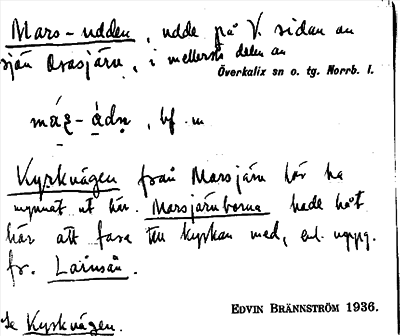 Mars-udden, udde på V. sidan av
sjön Orasjärv, i mellersta delen av
Överkalix sn o. tg. Norrb. l.
bf. m
Kyrkvägen från Marsjärv bör ha
mynnat ut här. Marsjärvborna hade båt
här att fara till kyrkan med, enl. uppg.
fr. Lainsån.
Se Kyrkvägen.
EDVIN BRÄNNSTRÖM 1936.